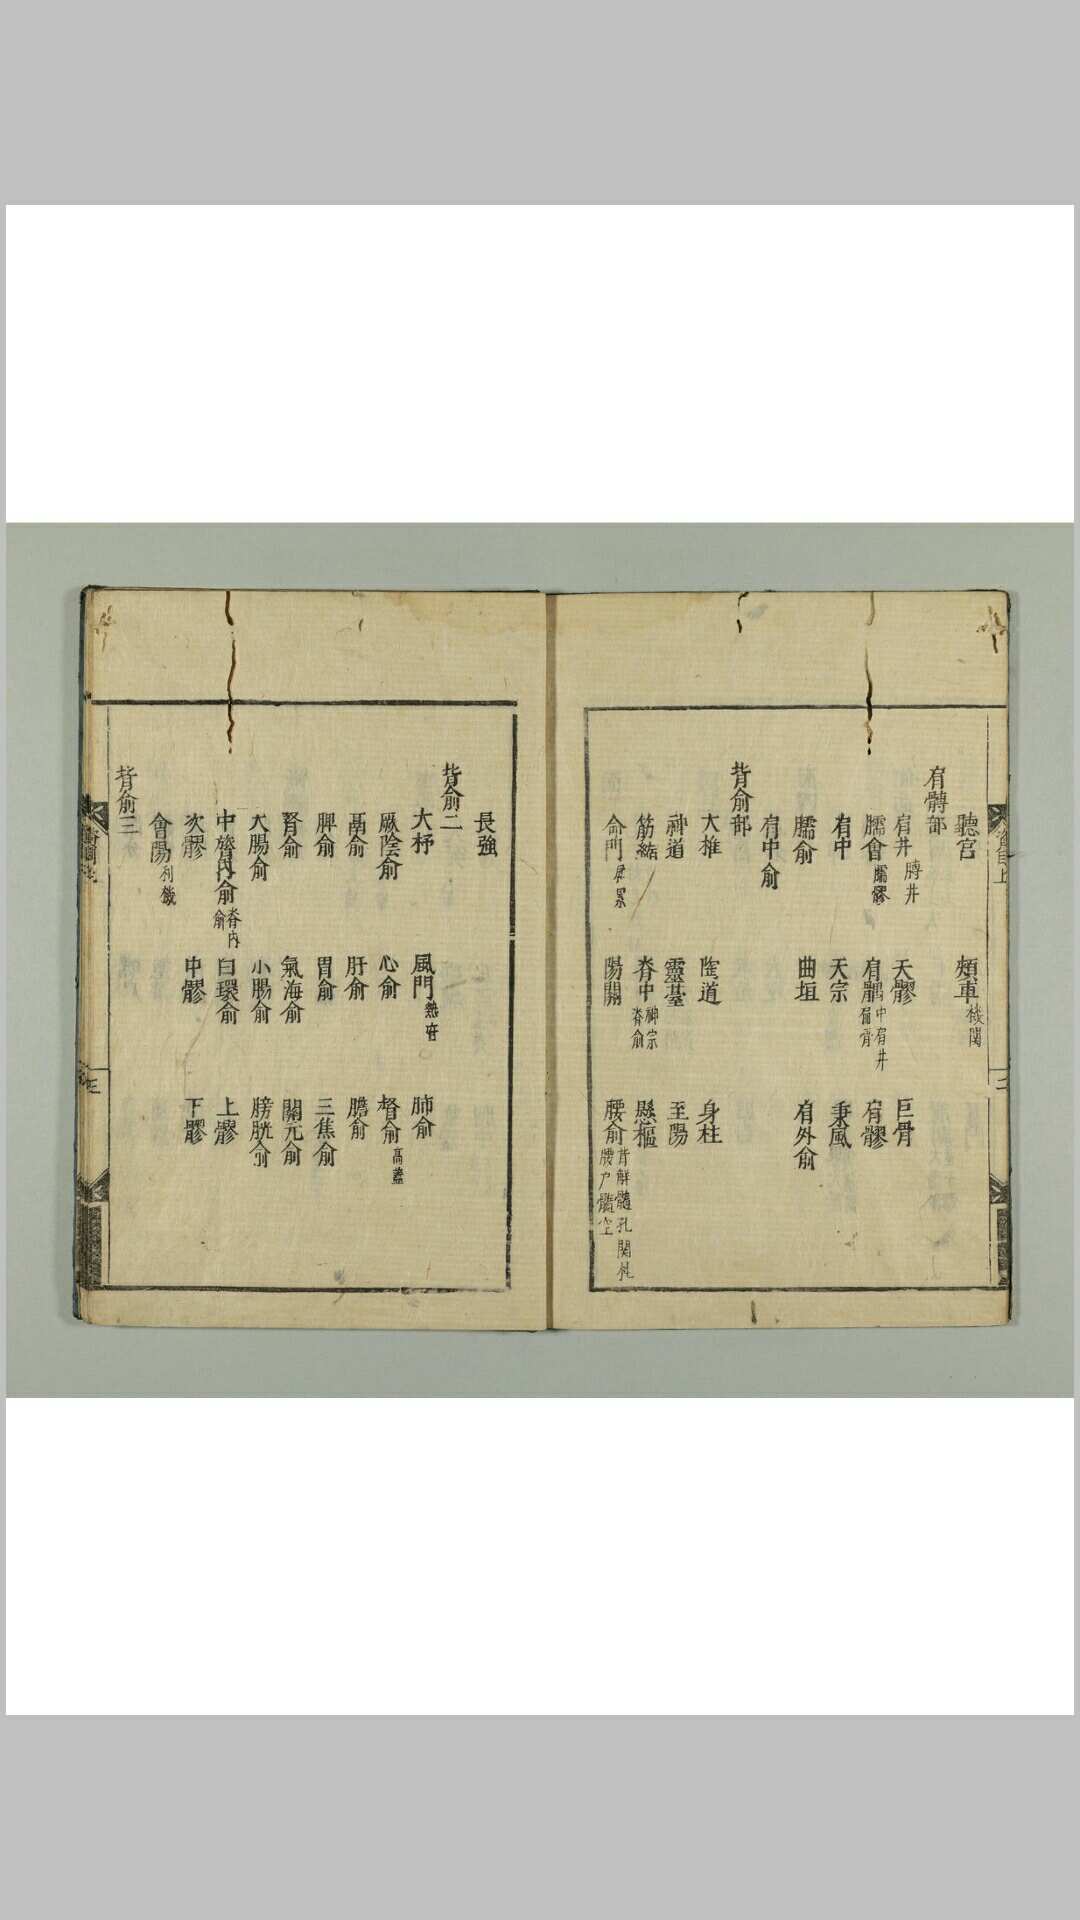 聽宮 頰車 機関
肩髆部
肩井 膊井 天髎 巨骨
臑會 臑髎 肩髃 中肩井 偏骨 肩髎
肩中 天宗 秉風
臑俞 曲垣 肩外俞
肩中俞
背俞部
大椎 陶道 身柱
神道 靈臺 至陽
筋縮 脊中 神宗 脊俞 懸樞
命門 屏累 陽關 腰俞 背解 髓孔 腰户 髓空
長強
背俞二
大杼 風門 熱府 肺俞
厥陰俞 心俞 督俞 高蓋
膈俞 肝俞 膽俞
脾俞 胃俞 三焦俞
腎俞 氣海俞 關元俞
大腸俞 小腸俞 膀胱俞
中膂內俞 脊内俞 白環俞 上髎
次髎 中髎 下髎
會陽 利機
背俞三